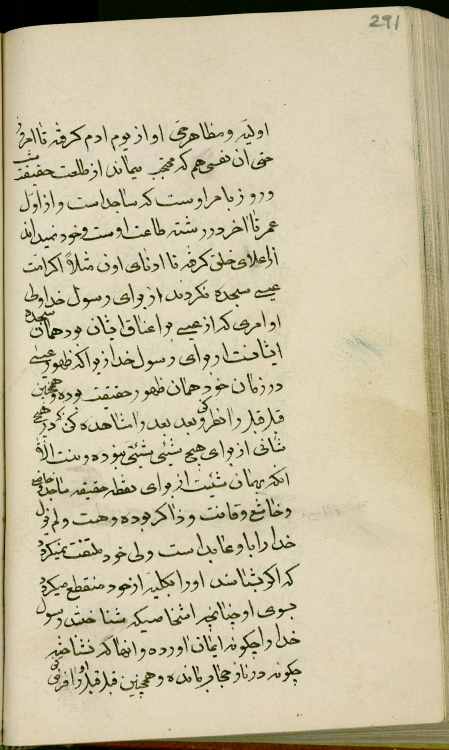 291
اولیه و مظاهر حی او از یوم ادم گرفته تا امروز
حتی ان نفسی هم که محتجب بماند از طلعت حقیقت شب
و روز بامر اوست که ساجد است و از اول
عمر تا اخر در رشته طاعت اوست و خود نمیداند
از اعلای خلق گرفته تا ادنای اون مثلا اگر امت
عیسی سجده نکردند از برای رسول خدا ولی
اوامری که از عیسی در اعناق ایشان بود همان سجده
ایشانست از برای رسول خدا زیرا که ظهور عیسی
در زمان خود همان ظهور حقیقت بوده و همچنین
قبل قبل را نظر کن و بعد بعد را مشاهده کن که در هیچ
شانی از برای هیچ شیئی شیئیتی نبوده و نیست الا
انکه بهمان شیئیت از برای نقطه حقیقت ساجد و خاضع
و خاشع و قانت و ذاکر بوده و هست و لم یزل
خدا را باو عابد است ولی خود ملتفت نمیگردد
که اگر بشناسد او را بکلیه از خود منقطع میگردد
بسوی او چنانچه اشخاصیکه شناختند رسول
خدا را چگونه ایمان اورده و انها که نشناخته
چگونه در نار حجاب مانده و همچنین قبل قبل او را فرض کن